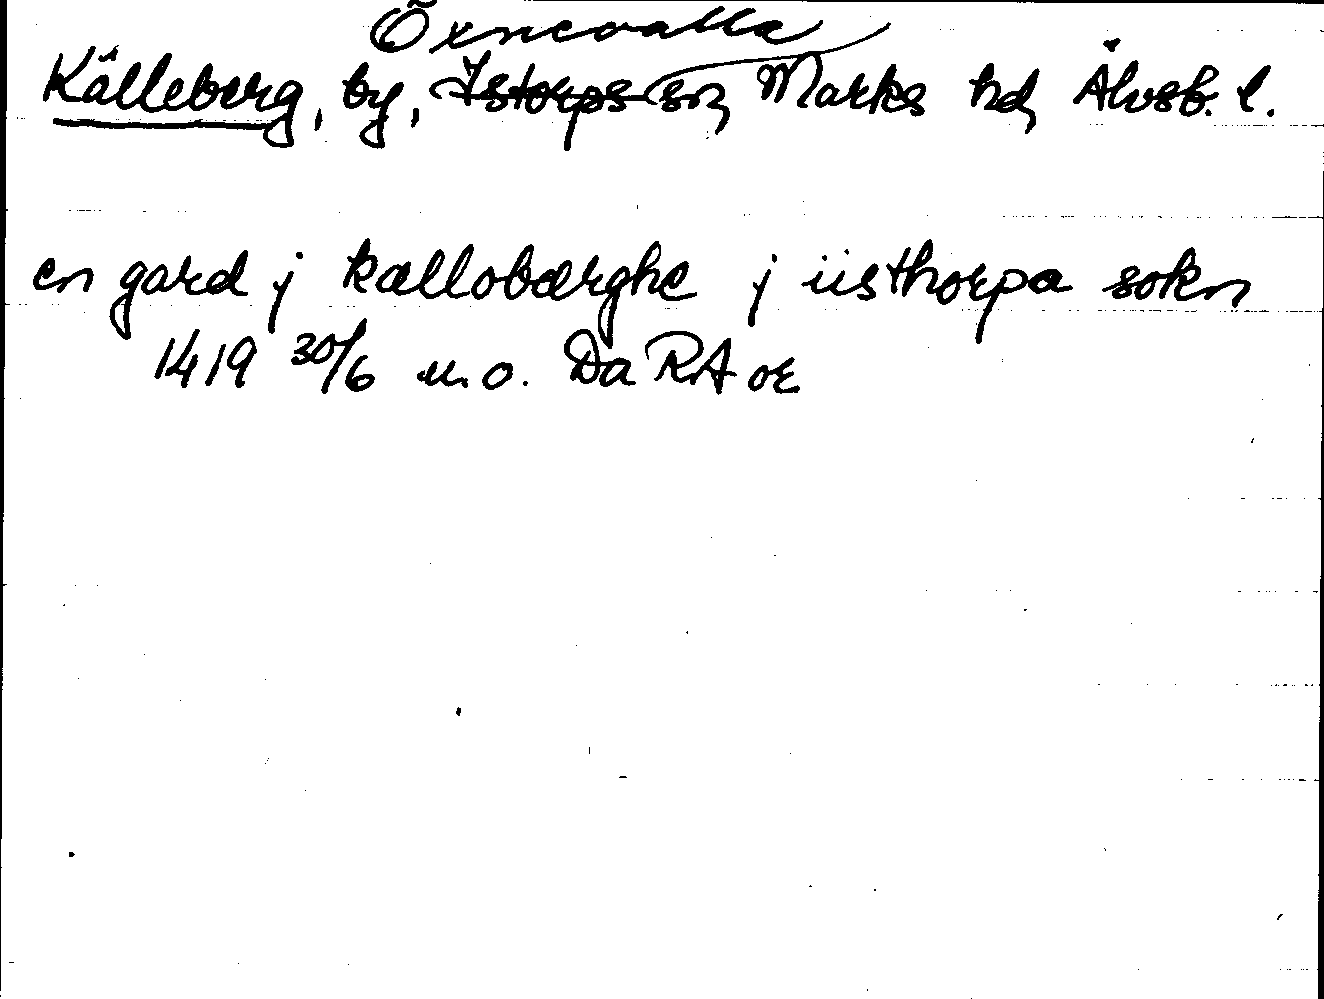 Öxnevalla
Källeberg, by, Istorps sn, Marks hd, Älvsb. l.
en gard j kællobærghe j iisthorpa sokn
1419 30/6 u. o. Da RA or